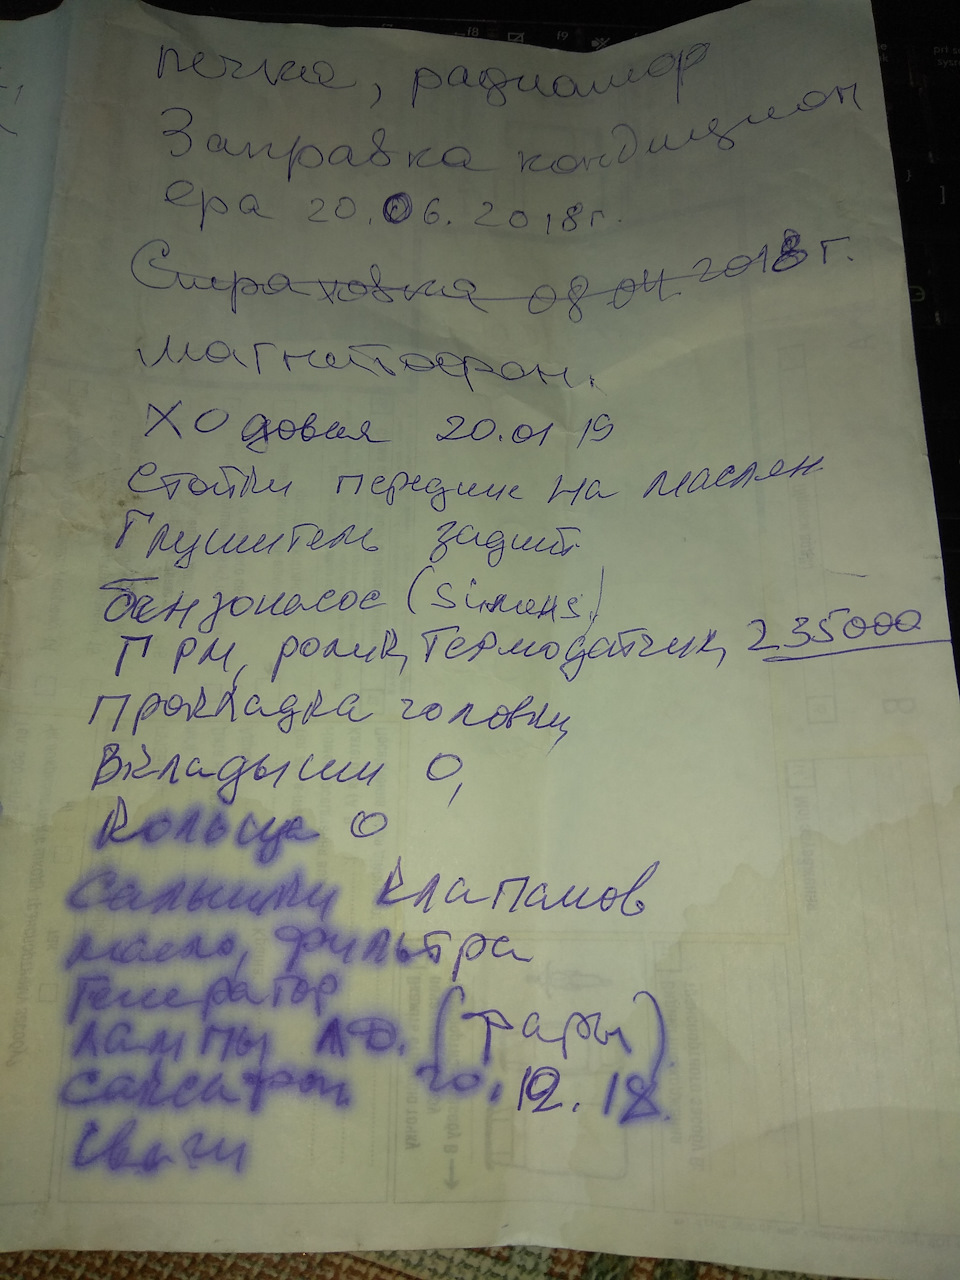 печка, радиатор
Заправка кондицион
ера 20.06.2018г.
Страховка 08 04 2018г.
магнитофон.
Ходовая 20.01 19
стойки передние на маслян
Глушитель задний
бензонасос (Simens)
ГРМ, ролик, Термодатчик, 235000
Прокладка головки,
Вкладыши 0,
Кольца 0
Сальники клапанов
масло, фильтра
Генератор
лампы (фары)
20.12.18
свечи